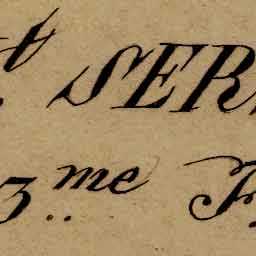 t SER
3.me F